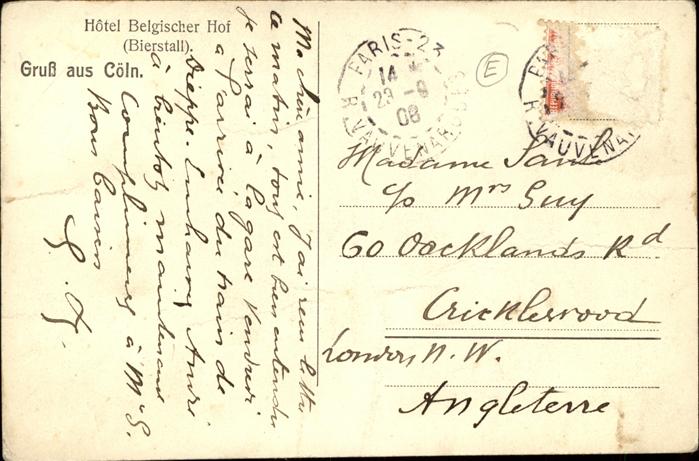 Hôtel Belgischer Hof
(Bierstall).
Gruß aus Cöln.
PARIS-23
14
23-9
08
R. VAUVENARGUES
E
R. VAUVENA
Madame
c/o Mrs Guy
60 Oacklands Rd
Cricklewood
London, N. W.
Angleterre
Ma amie, J'ai reçu lettre
ce matin, tout est bien entendu
je serai à la gare Vendredi
à l'arrivée du train de
Dieppe. André
à bientôt maintenant
Compliments à Mrs G.
Bons baisers